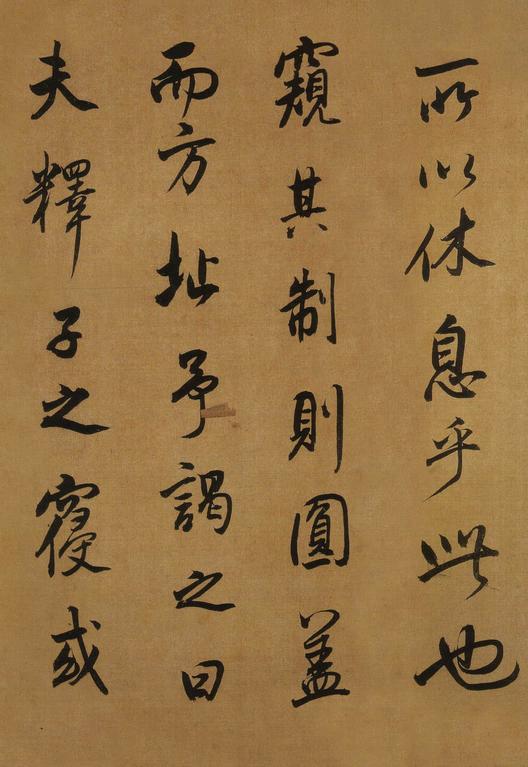 所以休息乎此也
窺其制則圓盖
而方址予謁之曰
夫釋子之寢或